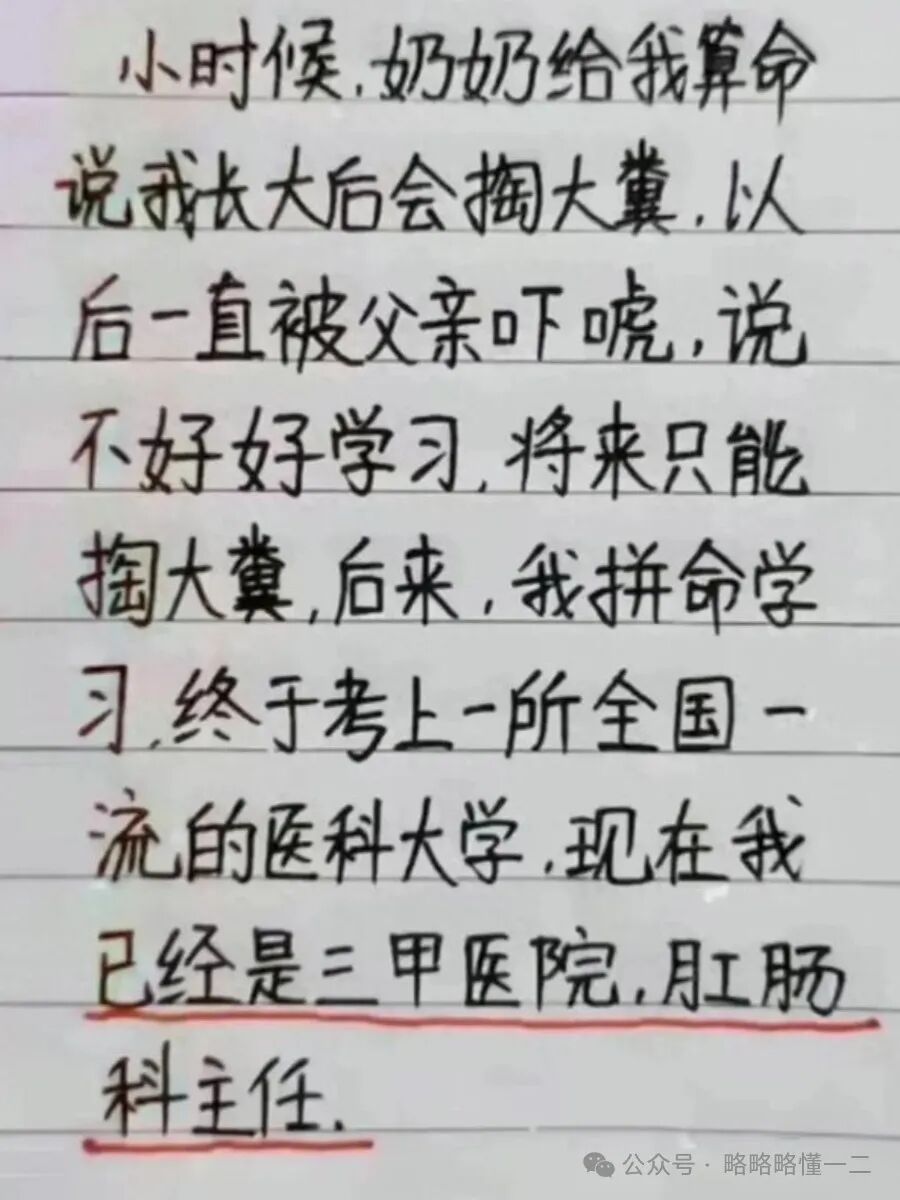 小时候,奶奶给我算命
说我长大后会掏大粪,以
后一直被父亲吓唬,说
不好好学习,将来只能
掏大粪,后来,我拼命学
习,终于考上一所全国一
流的医科大学,现在我
已经是三甲医院,肛肠
科主任.
公众号·略略略懂一二